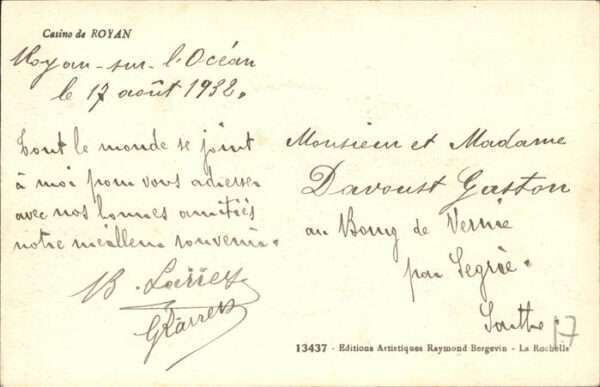 Casino de ROYAN
Royan-sur-l'Océan
le 17 août 1932.
Tout le monde se joint
à moi pour vous adresser
avec nos bonnes amitiés
notre meilleur souvenir.
Monsieur et Madame
Davoust Gaston
au Bourg de Vernie
par Segrie.
Sarthe
17
13437 - Editions Artistiques Raymond Bergevin - La Rochelle